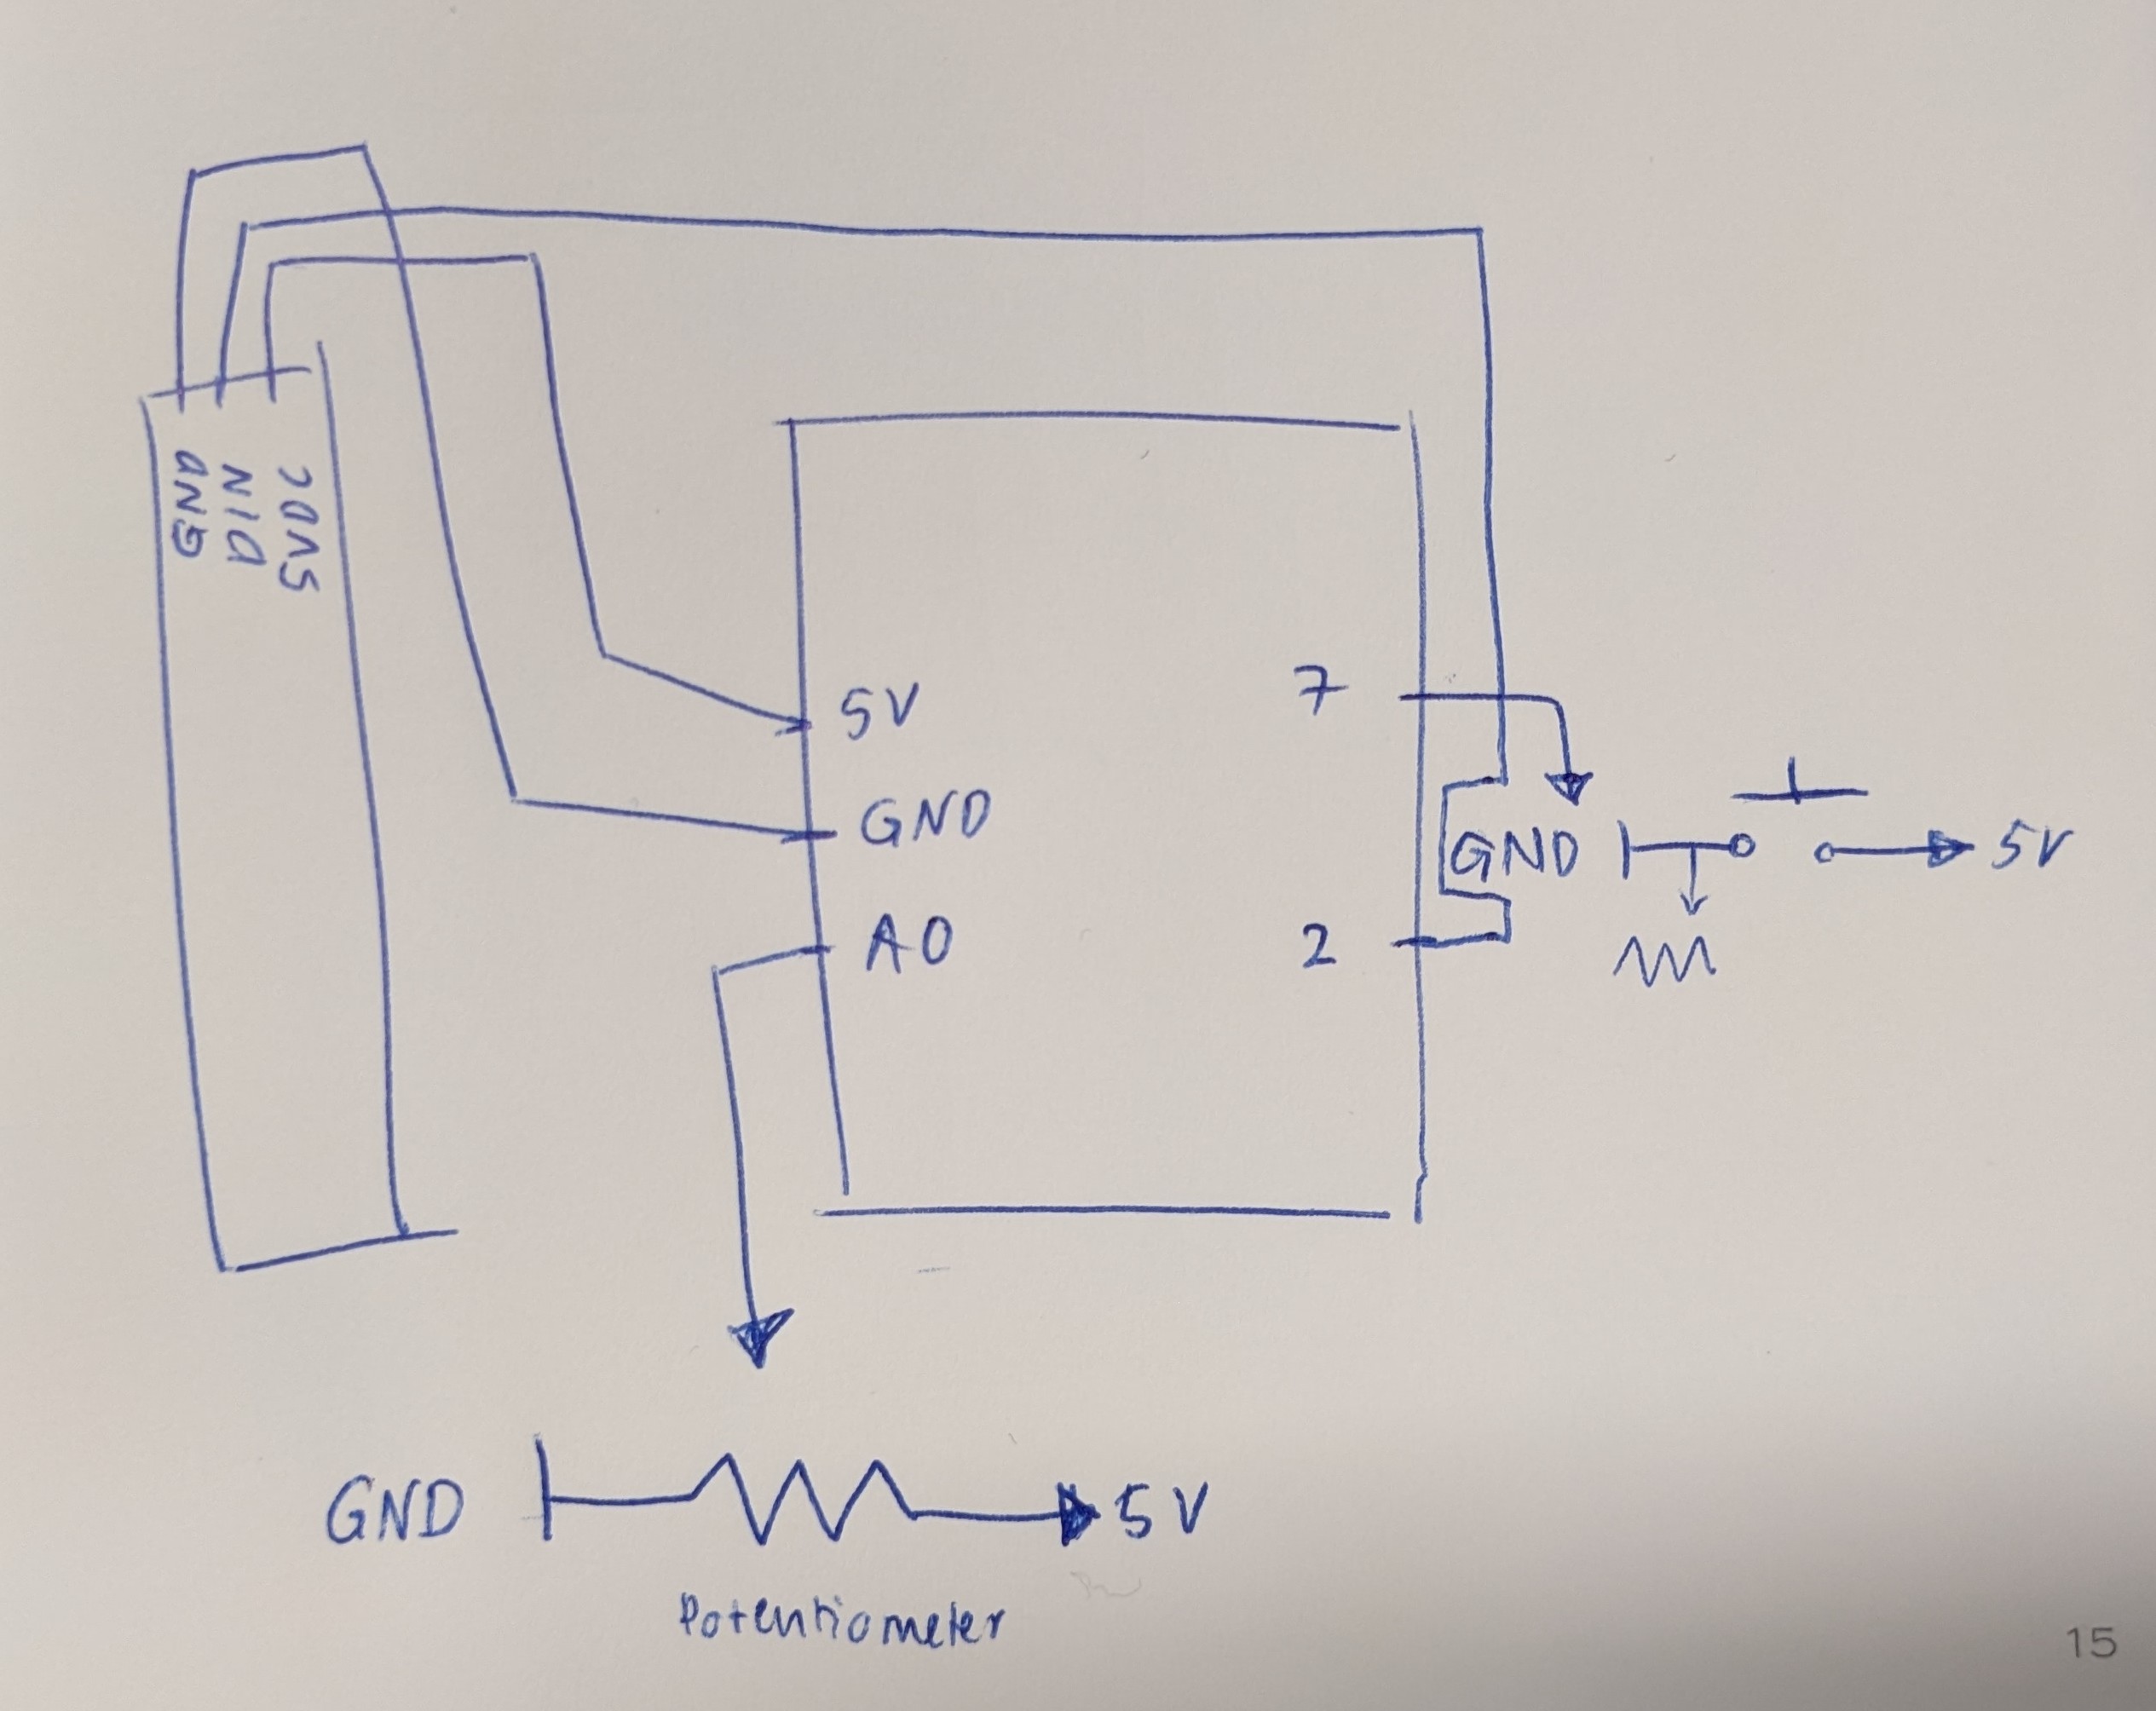 GND
DIN
5VDC
5V
GND
A0
7
GND
5V
2
GND
5V
Potentiometer
15